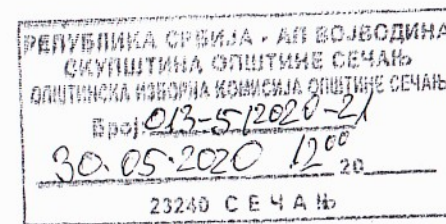 РЕПУБЛИКА СРБИЈА - АП ВОЈВОДИНА
СКУПШТИНА ОПШТИНЕ СЕЧАЊ
ОПШТИНСКА ИЗБОРНА КОМИСИЈА ОПШТИНЕ СЕЧАЊ
Број: 013-5/2020-21
30.05.2020 12⁰⁰ 20
23240 СЕЧАЊ